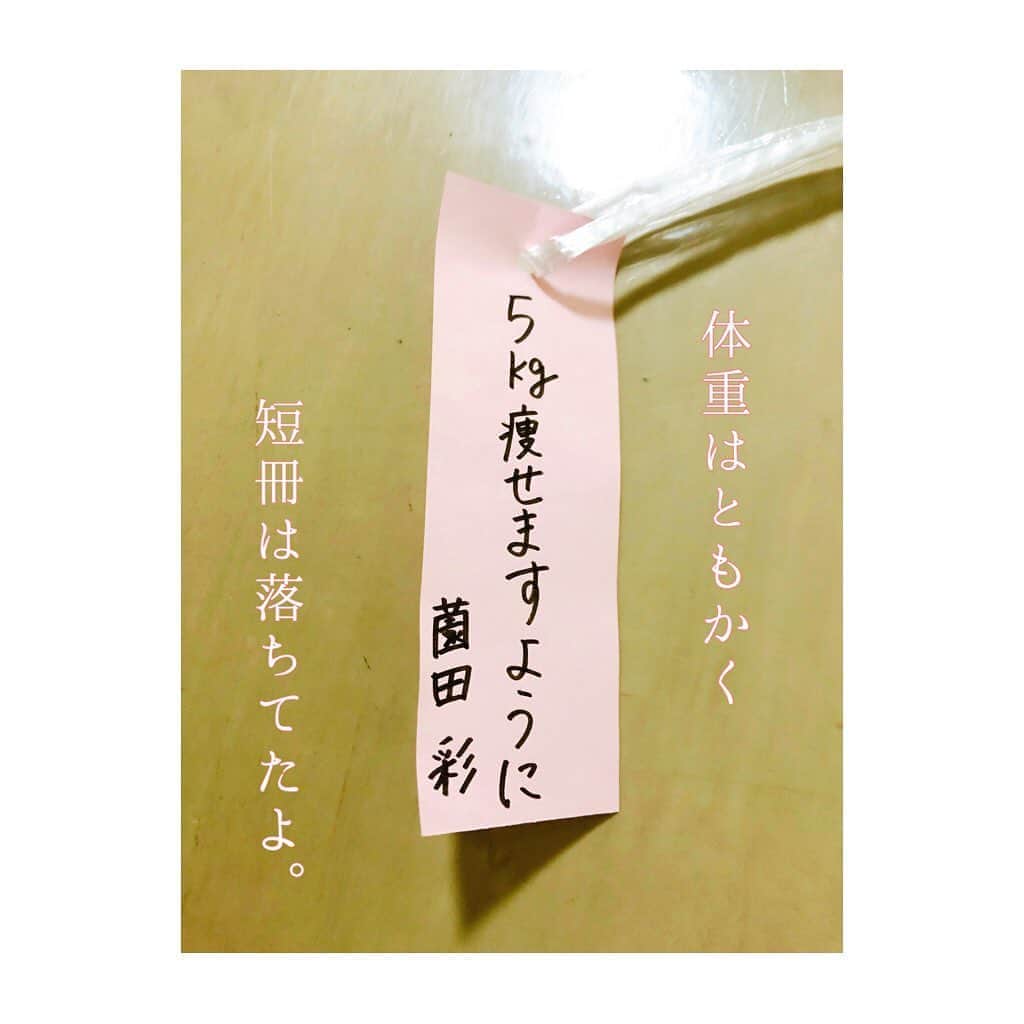 体重はともかく
5kg痩せますように
薗田 彩
短冊は落ちてたよ。